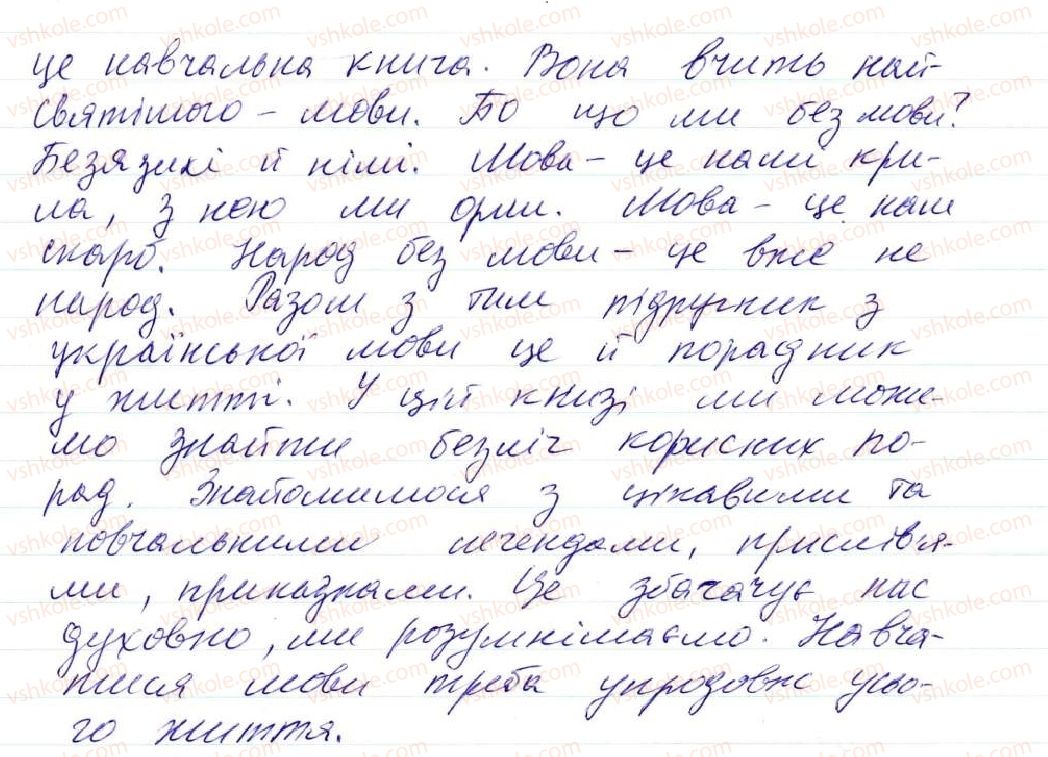 це навчальна книга. Вона вчить най-
святішого - мови. Бо що ми без мови?
Безязикі й німі. Мова - це наші кри-
ла, з нею ми орли. Мова - це наш
скарб. Народ без мови - це вже не
народ. Разом з тим підручник з
української мови це й порадник
у житті. У цій книзі ми може-
мо знайти безліч корисних по-
рад. Знайомимося з цікавими та
повчальними легендами, прислів'я-
ми, приказками. Це збагачує нас
духовно, ми розумнішаємо. Навча-
тися мови треба упродовж усьо-
го життя.